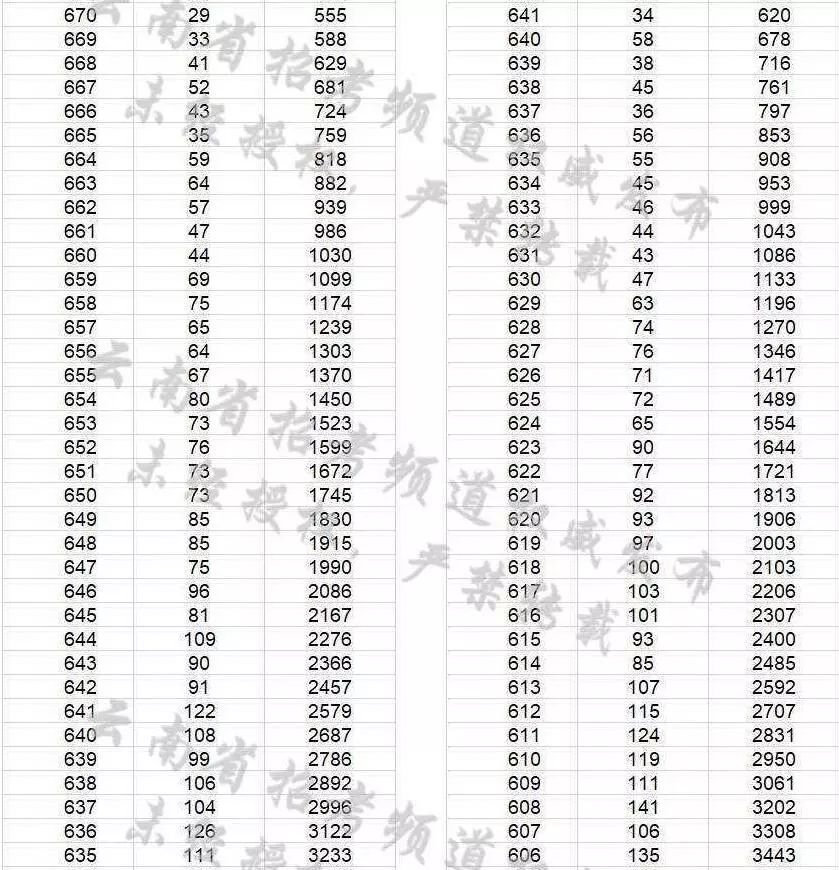 670 29 555 641 34 620
669 33 588 640 58 678
668 41 629 639 38 716
667 52 681 638 45 761
666 43 724 637 36 797
665 35 759 636 56 853
664 59 818 635 55 908
663 64 882 634 45 953
662 57 939 633 46 999
661 47 986 632 44 1043
660 44 1030 631 43 1086
659 69 1099 630 47 1133
658 75 1174 629 63 1196
657 65 1239 628 74 1270
656 64 1303 627 76 1346
655 67 1370 626 71 1417
654 80 1450 625 72 1489
653 73 1523 624 65 1554
652 76 1599 623 90 1644
651 73 1672 622 77 1721
650 73 1745 621 92 1813
649 85 1830 620 93 1906
648 85 1915 619 97 2003
647 75 1990 618 100 2103
646 96 2086 617 103 2206
645 81 2167 616 101 2307
644 109 2276 615 93 2400
643 90 2366 614 85 2485
642 91 2457 613 107 2592
641 122 2579 612 115 2707
640 108 2687 611 124 2831
639 99 2786 610 119 2950
638 106 2892 609 111 3061
637 104 2996 608 141 3202
636 126 3122 607 106 3308
635 111 3233 606 135 3443
云南省招考频道权威发布
未经授权,严禁转载
云南省招考频道权威发布
未经授权,严禁转载
云南省招考频道
未经授权,